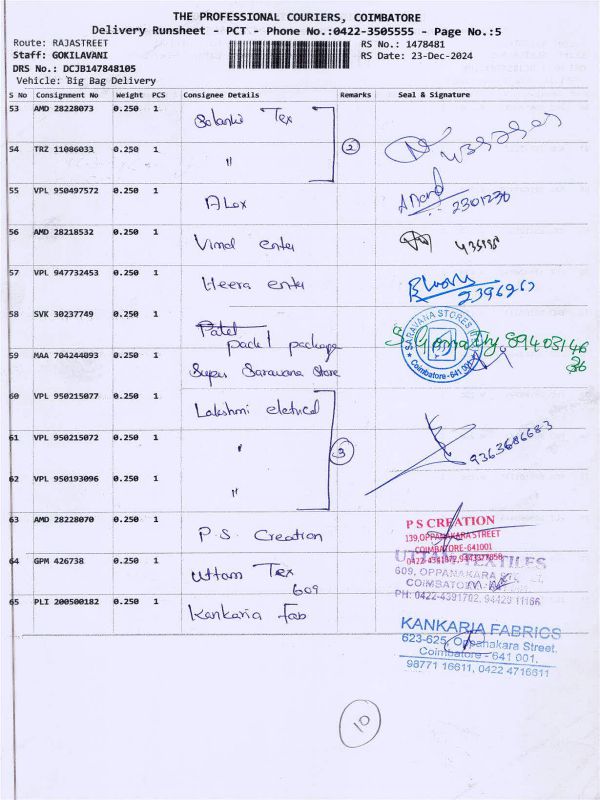 THE PROFESSIONAL COURIERS, COIMBATORE
Delivery Runsheet - PCT - Phone No.:0422-3505555 - Page No.:5
Route: RAJASTREET RS No.: 1478481
Staff: GOKILAVANI RS Date: 23-Dec-2024
DRS No.: DCJB147848105
Vehicle: Big Bag Delivery
S No Consignment No Weight PCS Consignee Details Remarks Seal & Signature
53 AMD 28228073 0.250 1 Solanki Tex
54 TRZ 11086033 0.250 1 " 2
55 VPL 950497572 0.250 1 ALox Anand 2301230
56 AMD 28218532 0.250 1 Vimal enter
57 VPL 947732453 0.250 1 Heera enter 2396263
58 SVK 30237749 0.250 1 Patel
packet package
SARAVANA STORES
Coimbatore-641 001
Gomathy 8940314636
59 MAA 704244093 0.250 1 Super Saravana Store
60 VPL 950215077 0.250 1 Lakshmi eletrical
61 VPL 950215072 0.250 1 " 3 9363686683
62 VPL 950193096 0.250 1 "
63 AMD 28228070 0.250 1 P.S. Creation
P S CREATION
139,OPPANAKARA STREET
COIMBATORE-641001
64 GPM 426738 0.250 1 Uttam Tex
609
UTTAM TEXTILES
609, OPPANAKARA
COIMBATORE
PH: 0422-4391702, 94429 11166
65 PLI 200500182 0.250 1 Kankaria Fab
KANKARIA FABRICS
623-625, Oppanakara Street,
Coimbatore - 641 001.
98771 16611, 0422 4716611
10